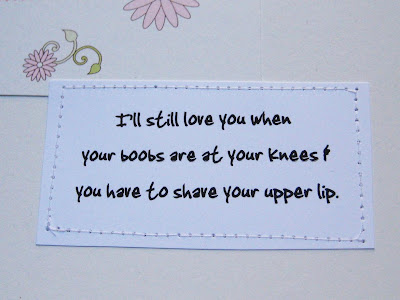 I'll still love you when
your boobs are at your knees &
you have to shave your upper lip.